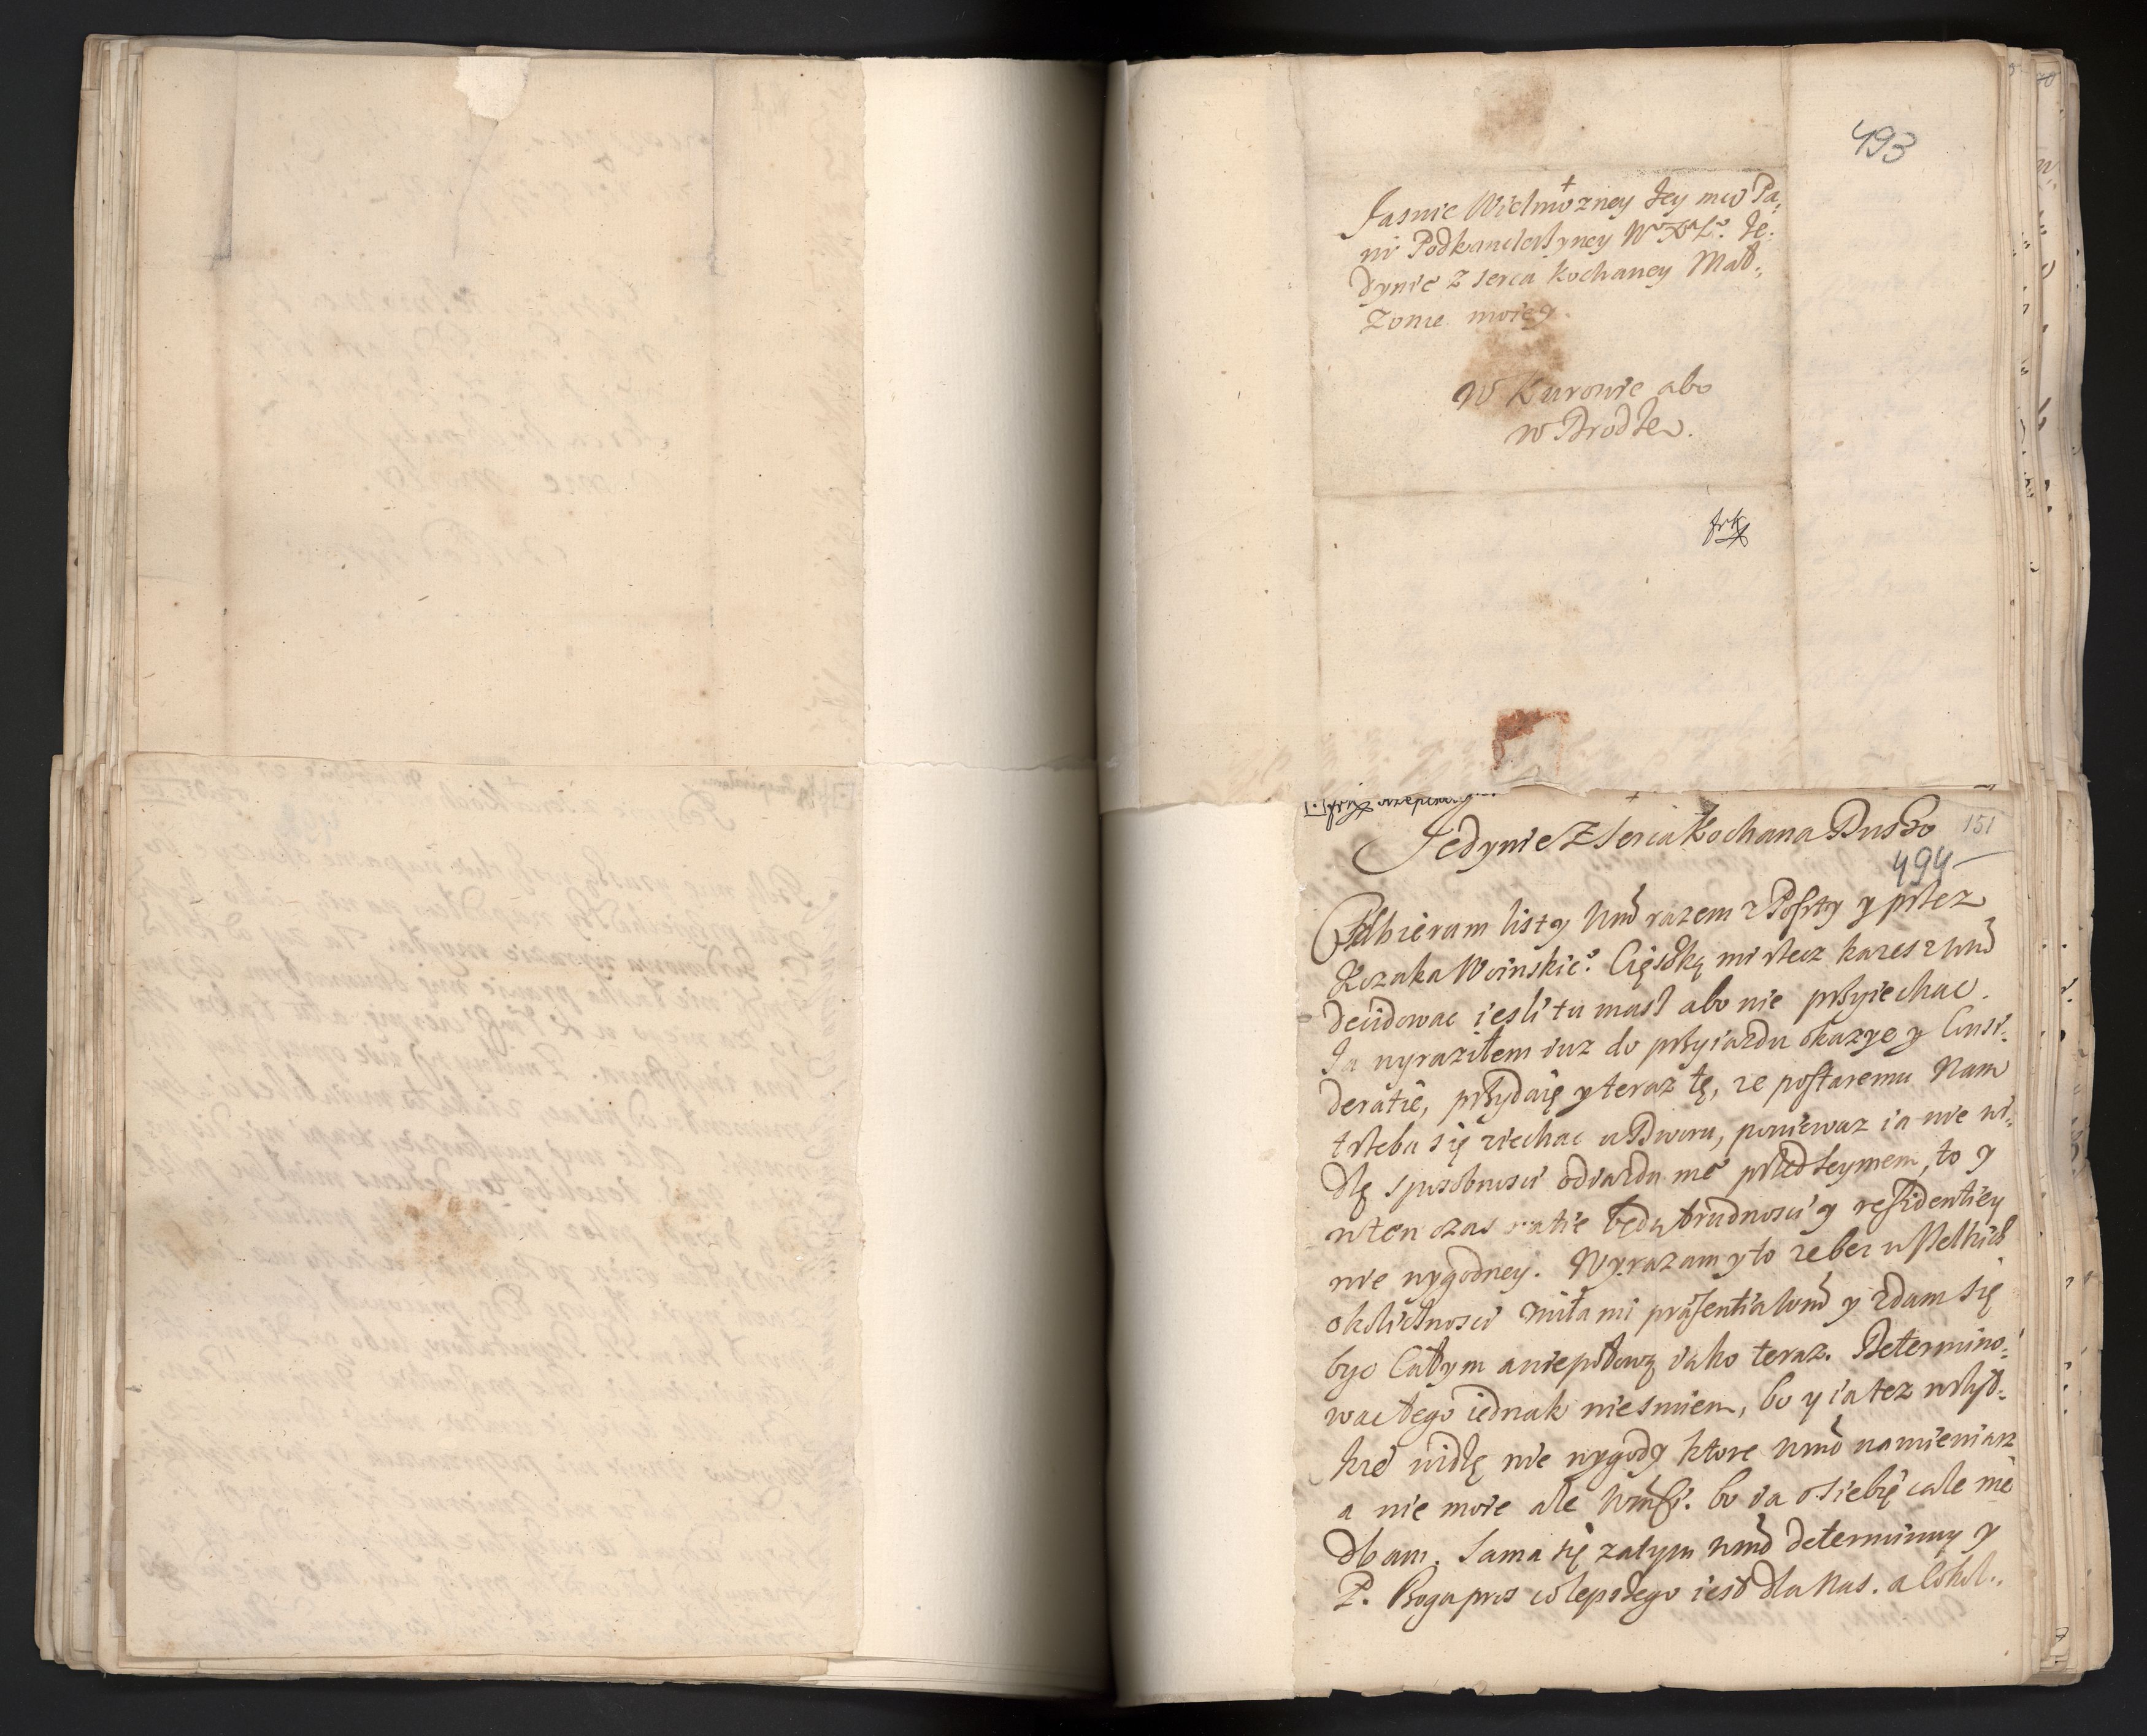 493
+
Jasnie Wielmozney Jey mci Pa:
ni Podkanclerzyney W° X° L°. Je:
dynie z serca kochaney Mał:
zonie moiey.
W Kurowie abo
w Brodle.
+
Jedynie z serca kochana Duszo
151
494
Odbieram listy Wmć razem z Poszty y przez
Kozaka Woinskie°. Cięszką mi rzecz kazesz Wmć
decidowac iesli tu masz abo nie przyiechac.
Ja wyraziłem iuz do przyiazdu okazye y Consi:
deratie, przydaię y teraz tę, ze postaremu Nam
trzeba się ziechac u Dworu, poniewaz ia nie wi:
dzę sposobnosci odiazdu me° przed Seymem, to y
w ten czas takie będą trudnosci y residentiey
nie wygodney. Wyrazam y to ze bez wszelkich
okolicznosci miła mi praesentia Wmć y zdam się
byc Całym a nie połową iako teraz. Determino:
wac tego iednak niesmiem, bo y ia tez wszyst:
kie widzę nie wygody ktore Wmć namieniasz
a nie moie ale Wmści. bo ia o siebię cale nie
dbam. Sama się zatym Wmć determinuy y
P. Boga pros co lepszego iest dla Nas. a Cokol: